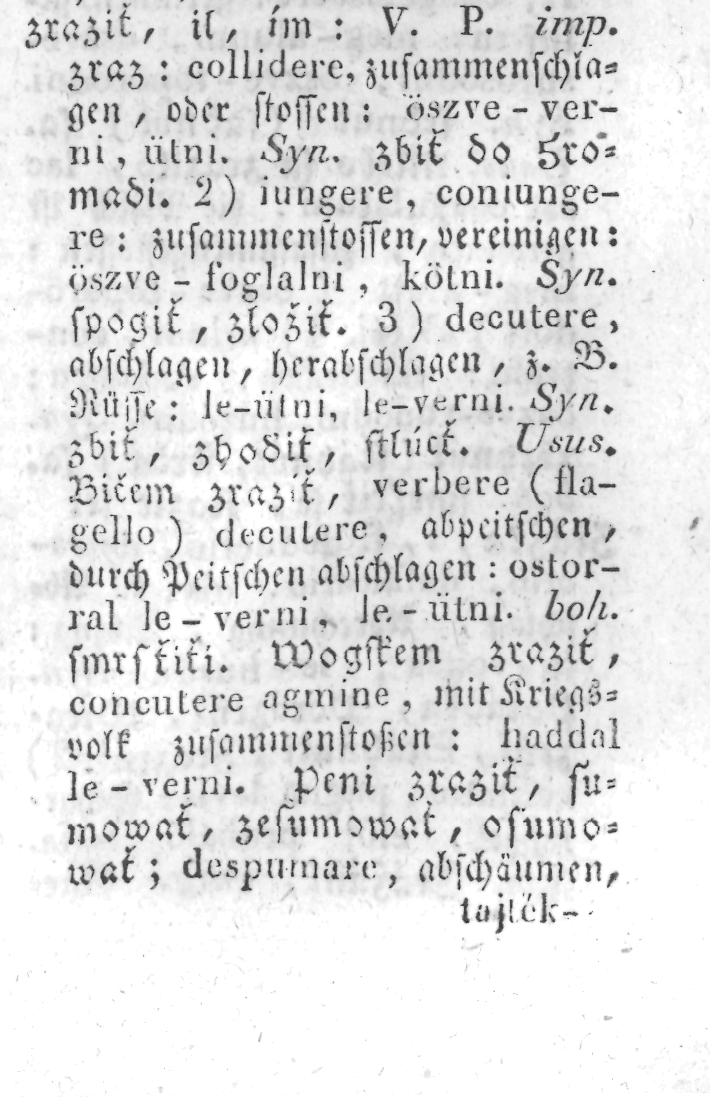 zraziť, il, ím: V. P. imp.
zraz: collidere, zuſammenſchla-
gen, oder ſtoſſen: öszve-ver-
ni, ütni. Syn. zbiť do hro-
madi. 2) iungere, coniunge-
re: zuſammenſtoſſen, vereinigen:
öszve-foglalni, kötni. Syn.
ſpogiť, zložiť. 3) decutere,
abſchlagen, herabſchlagen, z. B.
Nüſſe: le-ütni, le-verni. Syn.
zbiť, zhodiť, ſtlúcť. Usus.
Bičem zraziť, verbere (fla-
gello) decutere, abpeitſchen,
durch Peitſchen abſchlagen: ostor-
ral le-verni, le-ütni. boh.
ſmrſkiťi. Wogſkem zraziť,
concutere agmine, mit Kriegs-
volk zuſammenſtoßen: haddal
le-verni. Peni zraziť, ſu-
mowať, zeſumowať, oſumo-
wať; despumare, abſchäumen,
tajték-